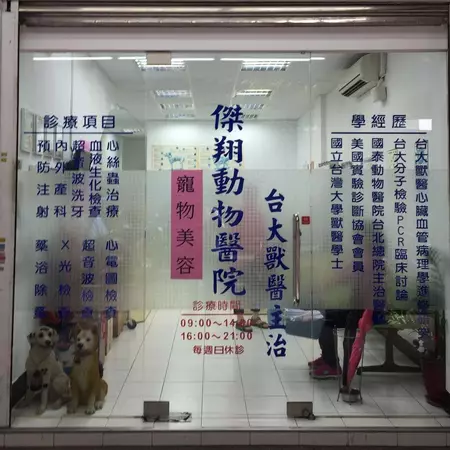 傑翔動物醫院
台大獸醫主治
寵物美容
診療時間
09:00～14:00
16:00～21:00
每週日休診
診療項目
心絲蟲治療
血液生化檢查
超音波洗牙
內外產科
預防注射
心電圖檢查
超音波檢查
X光檢查
藥浴除蚤
學經歷
台大獸醫心臟血管病理學進修
台大分子檢驗PCR臨床討論
國泰動物醫院台北總院主治
美國實驗診斷協會會員
國立台灣大學獸醫學士